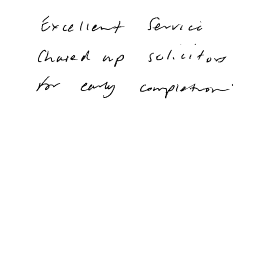 Excellent Service
Chased up solicitors
for early completion.